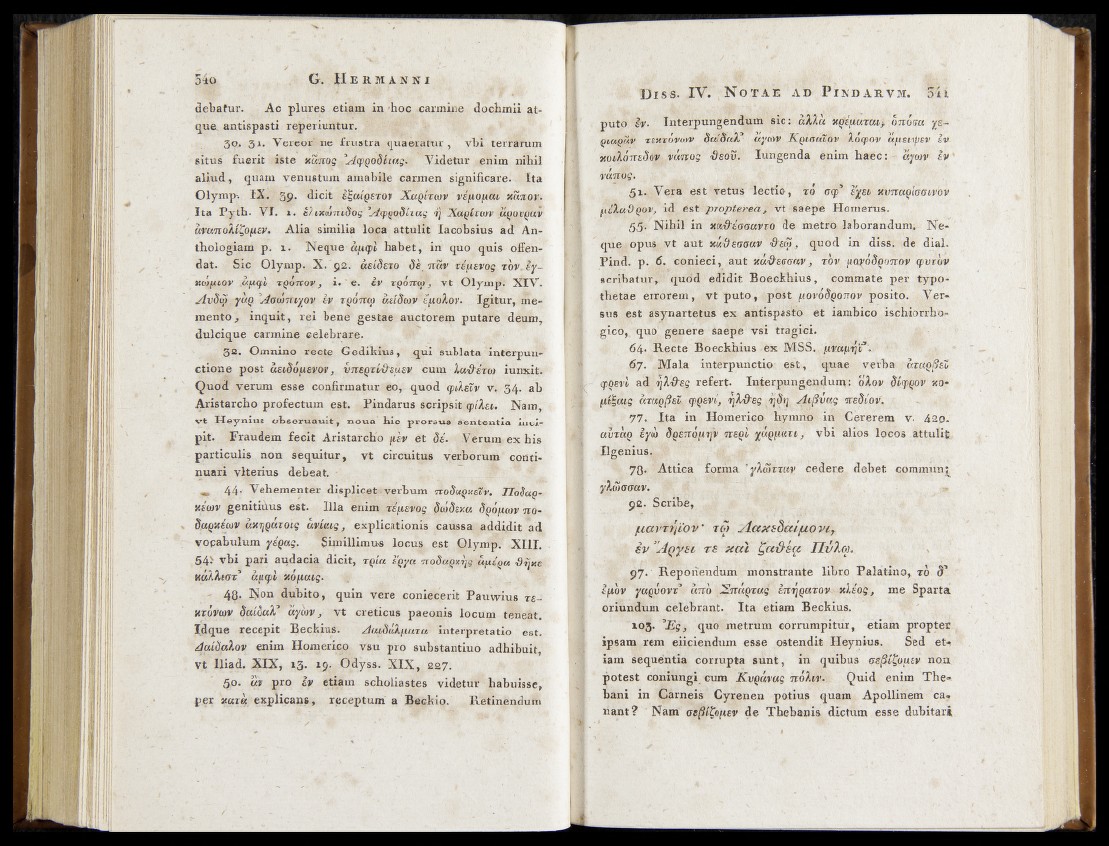 340 G. HERMANNI
debatur. Ac plures etiam in hoc carmine dochmii at-
que antispasti reperiuntur.
30. 31. Vereor ne frustra quaeratur, vbi terrarum
situs fuerit iste κᾶπος Ἀφροδίτας. Videtur enim nihil
aliud, quam venustum amabile carmen significare. Ita
Olymp. IX. 39. dicit ἐξαίρετον Χαρίτων νέμομαι κᾶπον.
Ita Pyth. VI. 1. ἑλικώπιδος Ἀφροδίτας ἢ Χαρίτων ἄρουραν
ἀναπολίζομεν. Alia similia loca attulit Iacobsius ad An-
thologiam p. 1. Neque ἀμφὶ habet, in quo quis offen-
dat. Sic Olymp. X. 92. ἀείδετο δὲ πᾶν τέμενος τὸν ἐγ-
κώμιον ἀμφὶ τρόπον, i. e. ἐν τρόπῳ, vt Olymp. XIV.
Λυδῷ γὰρ Ἀσώπιχον ἐν τρόπῳ ἀείδων ἔμολον. Igitur, me-
mento, inquit, rei bene gestae auctorem putare deum,
dulcique carmine celebrare.
32. Omnino recte Godikius, qui sublata interpun-
ctione post ἀειδόμενον, ὑπερτιθέμεν cum λαθέτω iunxit.
Quod verum esse confirmatur eo, quod φιλεῖν v. 34. ab
Aristarcho profectum est. Pindarus scripsit φίλει. Nam,
vt Heynius obseruauit, noua hic prorsus sententia inci-
pit. Fraudem fecit Aristarcho μὲν et δέ. Verum ex his
particulis non sequitur, vt circuitus verborum conti-
nuari vlterius debeat.
44. Vehementer displicet verbum ποδαρκεῖν. Ποδαρ-
κέων genitiuus est. Illa enim τέμενος δώδεκα δρόμων πο-
δαρκέων ἀκηράτοις ἁνίαις, explicationis caussa addidit ad
vocabulum γέρας. Simillimus locus est Olymp. XIII.
54. vbi pari audacia dicit, τρία ἔργα ποδαρκὴς ἁμέρα θῆκε
κάλλιστ' ἀμφὶ κόμαις.
48. Non dubito, quin vere coniecerit Pauwius τε-
κτόνων δαίδαλ' ἄγων, vt creticus paeonis locum teneat.
Idque recepit Beckius. Δαιδάλματα interpretatio est.
Δαίδαλον enim Homerico vsu pro substantiuo adhibuit,
vt Iliad. XIX, 13. 19. Odyss. XIX, 227.
50. ἂν pro ἐν etiam scholiastes videtur habuisse,
per κατὰ explicans, receptum a Beckio. Retinendum
DISS. IV. NOTAE AD PINDARVM. 341
puto ἐν. Interpungendum sic: ἀλλὰ κρέμαται, ὁπόσα χε-
ριαρᾶν τεκτόνων δαίδαλ' ἄγων Κρισαῖον λόφον ἄμειψεν ἐν
κοιλόπεδον νάπος θεοῦ. Iungenda enim haec: ἄγων ἐν
νάπος.
51. Vera est vetus lectio, τό σφ' ἔχει κυπαρίσσινον
μέλαθρον, id est propterea, vt saepe Homerus.
55. Nihil in καθέσσαντο de metro laborandum. Ne-
que opus vt aut κάθεσσαν θεῷ, quod in diss. de dial.
Pind. p. 6. conieci, aut κάθεσσαν, τὸν μονόδροπον φυτὸν
scribatur, quod edidit Boeckhius, commate per typo-
thetae errorem, vt puto, post μονόδροπον posito. Ver-
sus est asynartetus ex antispasto et iambico ischiorrho-
gico, quo genere saepe vsi tragici.
64. Recte Boeckhius ex MSS. μναμήϊ'.
67. Mala interpunctio est, quae verba ἀταρβεῖ
φρενὶ ad ἦλθες refert. Interpungendum: ὅλον δίφρον κο-
μίξαις ἀταρβεῖ φρενί, ἦλθες ἤδη Λιβύας πεδίον.
77. Ita in Homerico hymno in Cererem v. 420.
αὐτὰρ ἐγὼ δρεπόμην περὶ χάρματι, vbi alios locos attulit
Ilgenius.
78. Attica forma γλῶτταν cedere debet communi
γλῶσσαν.
92. Scribe,
μαντήϊον· τῷ Λακεδαίμονι,
ἐν Ἄργει τε καὶ ζαθέᾳ Πύλῳ.
97. Reponendum monstrante libro Palatino, τὸ δ'
ἐμὸν γαρύοντ' ἀπὸ Σπάρτας ἐπήρατον κλέος, me Sparta
oriundum celebrant. Ita etiam Beckius.
103. Ἐς, quo metrum corrumpitur, etiam propter
ipsam rem eiiciendum esse ostendit Heynius. Sed et-
iam sequentia corrupta sunt, in quibus σεβίζομεν non
potest coniungi cum Κυράνας πόλιν. Quid enim The-
bani in Carneis Cyrenen potius quam Apollinem ca-
nant? Nam σεβίζομεν de Thebanis dictum esse dubitari